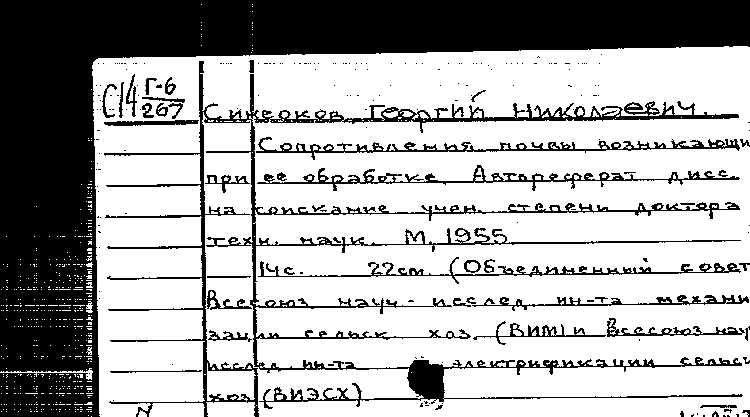 С14 Г-6
267
Синеоков Георгий Николаевич.
Сопротивления почвы возникающи
при ее обработке Автореферат дисс.
на соискание учен. степени доктора
техн. наук. М, 1955
14с. 22см. (Объединенный совет
Всесоюз науч-исслед ин-та механи
зации сельск хоз. (ВИМ) и Всесоюз науч
исслед ин-та электрификации сельск
хоз (ВИЭСХ)
N